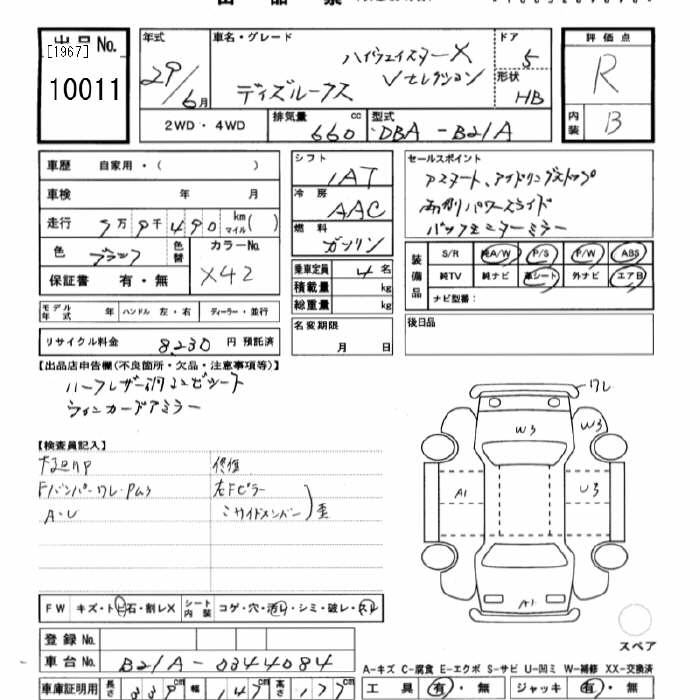 出品票
出品 No.
[1967]
10011
年式
29/6月
車名・グレード
ハイウェイスターX
Vセレクション
デイズルークス
ドア
5
形状
HB
2WD・4WD
排気量
660 cc
型式
DBA-B21A
評価点
R
内装
B
車歴 自家用・( )
車検 年 月
走行 9万9千490 km マイル( )
色 ブラック
色替
カラーNo.
X42
保証書 有・無
モデル年式 年 ハンドル 左・右 ディーラー・並行
リサイクル料金 8,230 円 預託済
シフト
IAT
冷房
AAC
燃料
ガソリン
乗車定員 4 名
積載量 kg
総重量 kg
名変期限
月 日
セールスポイント
Pスタート、アイドリングストップ
両側パワースライド
バックモニターミラー
装備品
S/R 純A/W P/S P/W ABS
純TV 純ナビ 革シート 外ナビ エアB
ナビ型番:
後日品
【出品店申告欄(不良箇所・欠品・注意事項等)】
ハーフレザー調コンビシート
ウィンカードアミラー
【検査員記入】
Fバンパーワレ・
A・U
修復
右Fピラー
〃サイドメンバー
歪
ワレ
W3
W3
A1
U3
A1
スペア
FW キズ・トビ石・割レX
シート内装 コゲ・穴・汚レ・シミ・破レ・スレ
登録 No.
車台 No. B21A-0344084
車庫証明用 長さ 339cm 幅 147cm 高さ 177cm
A-キズ C-腐食 E-エクボ S-サビ U-凹ミ W-補修 XX-交換済
工具 有・無 ジャッキ 有・無